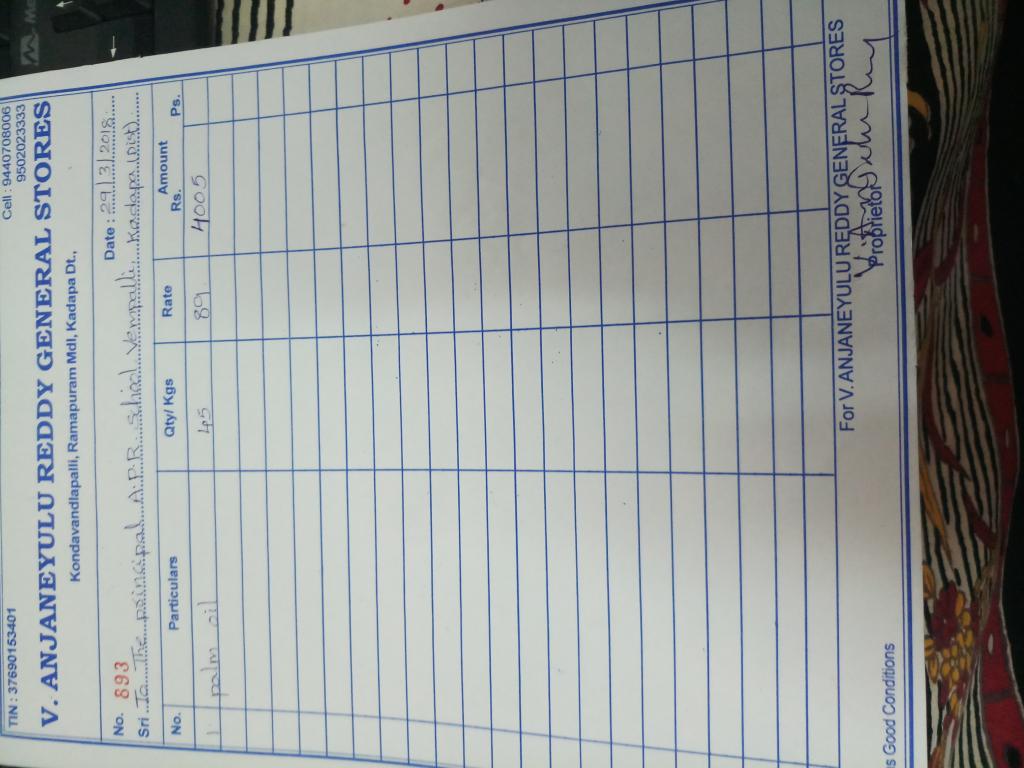 TIN : 37690153401 Cell : 9440708006
9502023333
V. ANJANEYULU REDDY GENERAL STORES
Kondavandlapalli, Ramapuram Mdl, Kadapa Dt.,
No. 893 Date : 29/3/2018
Sri To The paincipal A.P.R. School Vempalli. Kadapa (Dist)
No. Particulars Qty/ Kgs Rate Amount
Rs. Ps.
1 palm oil 45 89 4005
For V. ANJANEYULU REDDY GENERAL STORES
Proprietor
s Good Conditions